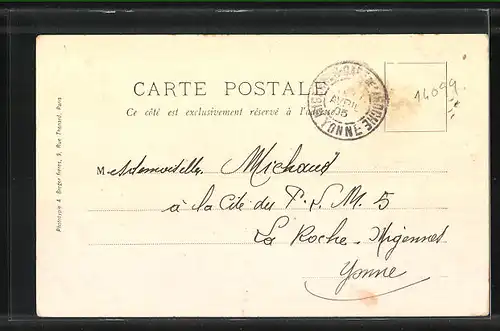 CARTE POSTALE
Ce côté est exclusivement réservé à l'adresse
AVRIL
05
YONNE
14099
Mademoiselle Michaud
à la Cité du P. L. M. 5
La Roche-Migennes
Yonne
Phototypie A. Berger frères, 9, Rue Thénard, Paris